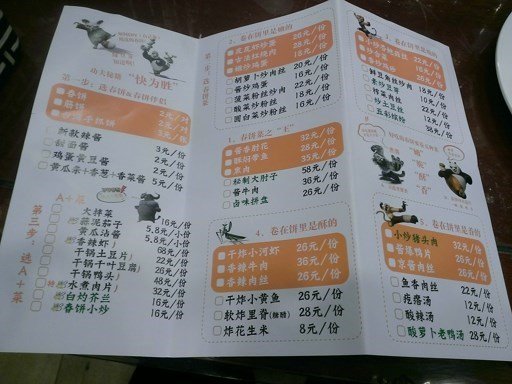 功夫秘籍 "快为胜"
第一步：选春饼&春饼伴侣
春饼 2元/对
筋饼 2元/对
3元/份
新款辣酱 3元/份
甜面酱 2元/份
鸡蛋黄豆酱 2元/份
黄瓜条+香葱+香菜酱 5元/份
第三步：选A+菜
A+菜
大拌菜 16元/份
蒜泥茄子 5.8元/份
黄瓜沾酱 5.8元/小份
香辣虾 58元/份
干锅土豆片 22元/份
干锅千叶豆腐 26元/份
干锅鸭头 48元/份
水煮肉片 32元/份
白灼芥兰 16元/份
春饼小炒 16元/份
2、卷在饼里是嫩的
韭花虾炒蛋 26元/份
古法红烧肉 28元/份
银芽鸡蛋 16元/份
胡萝卜炒肉丝 20元/份
酱炒鸡蛋 16元/份
菠菜粉丝炒肉 22元/份
酸菜炒粉丝 18元/份
圆白菜炒粉丝 16元/份
1、卷饼菜之"王"
酱香肘花 32元/份
豚焖带鱼 28元/份
熏肉 35元/份
秘制大肘子 58元/份
酱牛肉 36元/份
卤味拼盘 26元/份
4、卷在饼里是酥的
干炸小河虾 26元/份
香辣牛肉 36元/份
香辣肉丝 26元/份
干炸小黄鱼 26元/份
软炸里脊(椒盐) 28元/份
炸花生米 8元/份
小炒香干肉丝
鲜豆角丝炒肉 18元/份
素炒豆芽 10元/份
榨菜肉丝 22元/份
炒土豆丝 12元/份
豆彩缤纷 38元/份
5、卷在饼里是香的
小炒猪头肉 32元/份
酱爆鸭片 26元/份
京酱肉丝 26元/份
鱼香肉丝 22元/份
疙瘩汤 12元/份
酸辣汤 12元/份
酸萝卜老鸭汤 28元/份